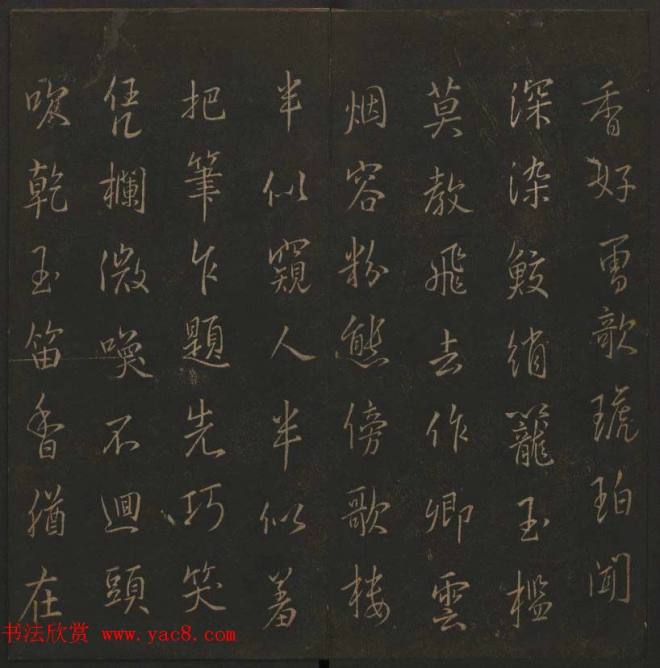 香好歌琥珀聞
深染鮫綃籠玉檻
莫教飛去作卿雲
烟容粉態傍歌樓
半似窺人半似羞
把筆乍題先巧笑
凭欄微喚不迴頭
吹乾玉笛香猶在
书法欣赏 www.yac8.com